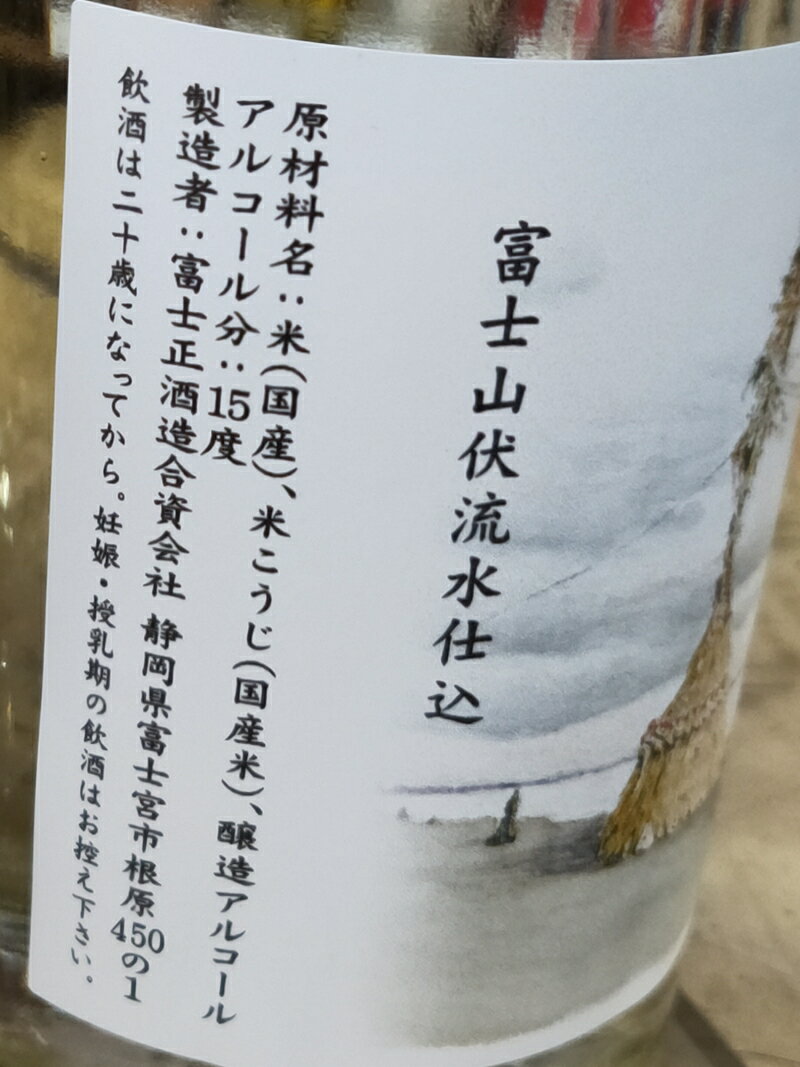 富士山伏流水仕込
原材料名：米（国産）、米こうじ（国産米）、醸造アルコール
アルコール分：15度
製造者：富士正酒造合資会社 静岡県富士宮市根原450の1
飲酒は二十歳になってから。妊娠・授乳期の飲酒はお控え下さい。